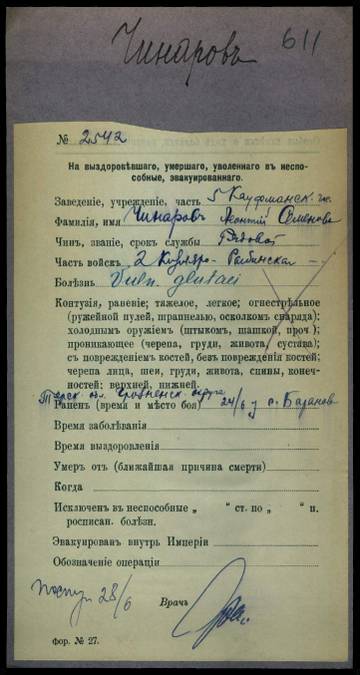 Чинаровъ 611
№ 2542
На выздоровѣвшаго, умершаго, уволеннаго въ неспо-
собные, эвакуированнаго.
Заведеніе, учрежденіе, часть 5 Кауфманск.
Фамилія, имя Чинаровъ Леонтій Семеновъ
Чинъ, званіе, срокъ службы Рядовой
Часть войскъ 2
Болѣзнь Vuln. glutaei
Контузія, раненіе; тяжелое, легкое; огнестрѣльное
(ружейной пулей, шрапнелью, осколкомъ снаряда);
холоднымъ оружіемъ (штыкомъ, шашкой, проч.);
проникающее (черепа, груди, живота, сустава);
съ поврежденіемъ костей, безъ поврежденія костей;
черепа лица, шеи, груди, живота, спины, конеч-
ностей: верхней, нижней.
Раненъ (время и мѣсто боя) 24/6 у с.
Время заболѣванія
Время выздоровленія
Умеръ отъ (ближайшая причина смерти)
Когда
Исключенъ въ неспособные „ “ ст. по „ “ п.
росписан. болѣзн.
Эвакуированъ внутрь Имперіи
Обозначеніе операціи
Поступ. 28/6
Врачъ
фор. № 27.